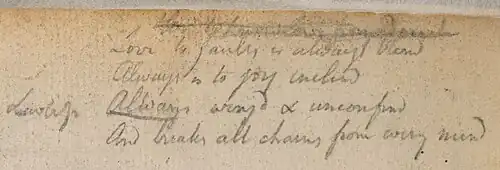 Love to faults is always blind
Always is to joy inclind
Lawless Always wingd & unconfind
And breaks all chains from every mind